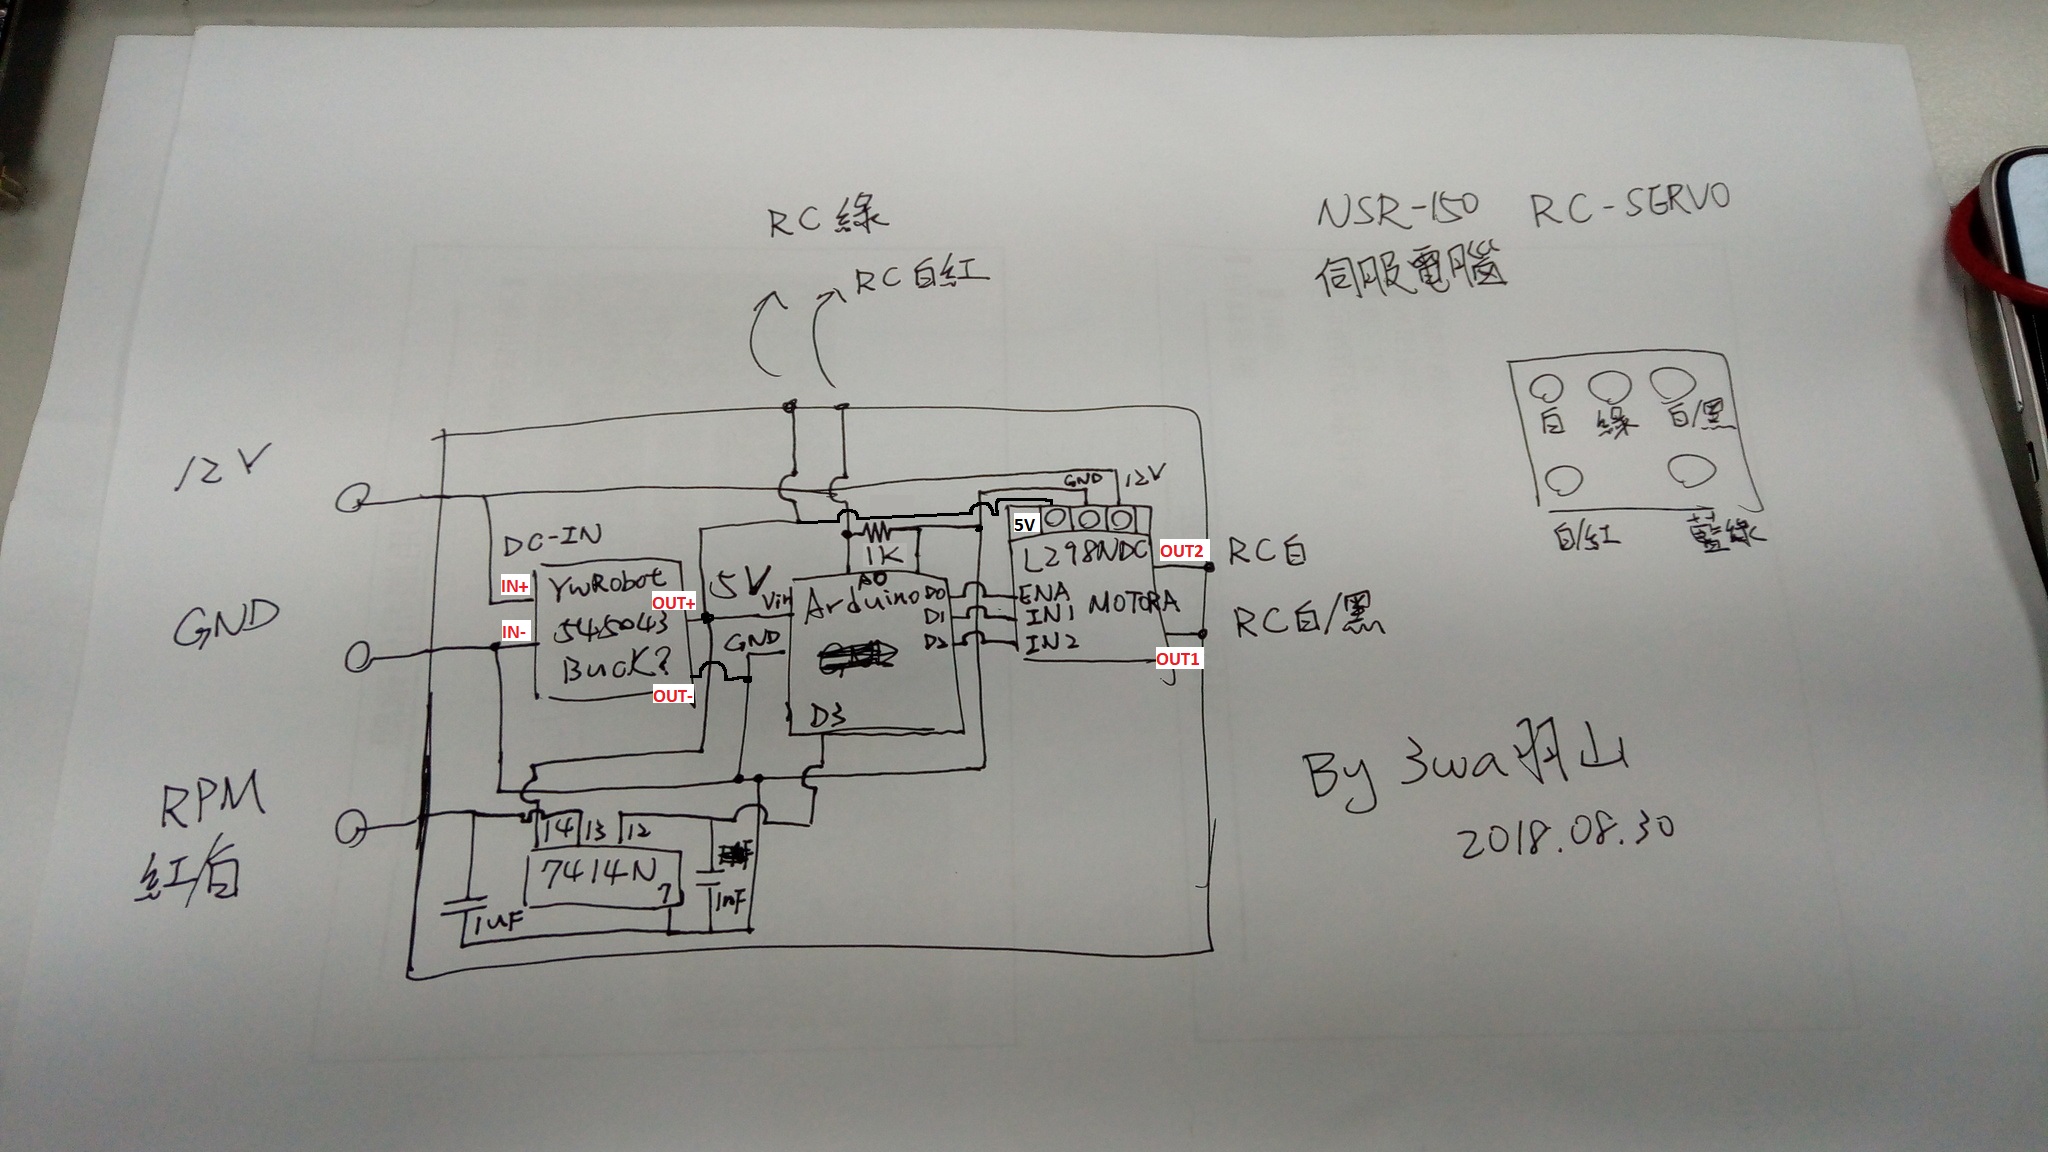 NSR-150 RC-SERVO
伺服電腦
RC 綠
RC 白紅
白 綠 白/黑
白/紅 藍綠
12V
GND
RPM
紅/白
DC-IN
IN+
IN-
YwRobot
545043
Buck?
OUT+
OUT-
5V
Vin
GND
1K
A0
Arduino
D0
D1
D2
D3
GND
12V
5V
L298NDC
ENA
IN1
IN2
MOTORA
OUT2
OUT1
RC白
RC白/黑
14 13 12
7414N
7
1uF
1nF
By 3wa羽山
2018.08.30